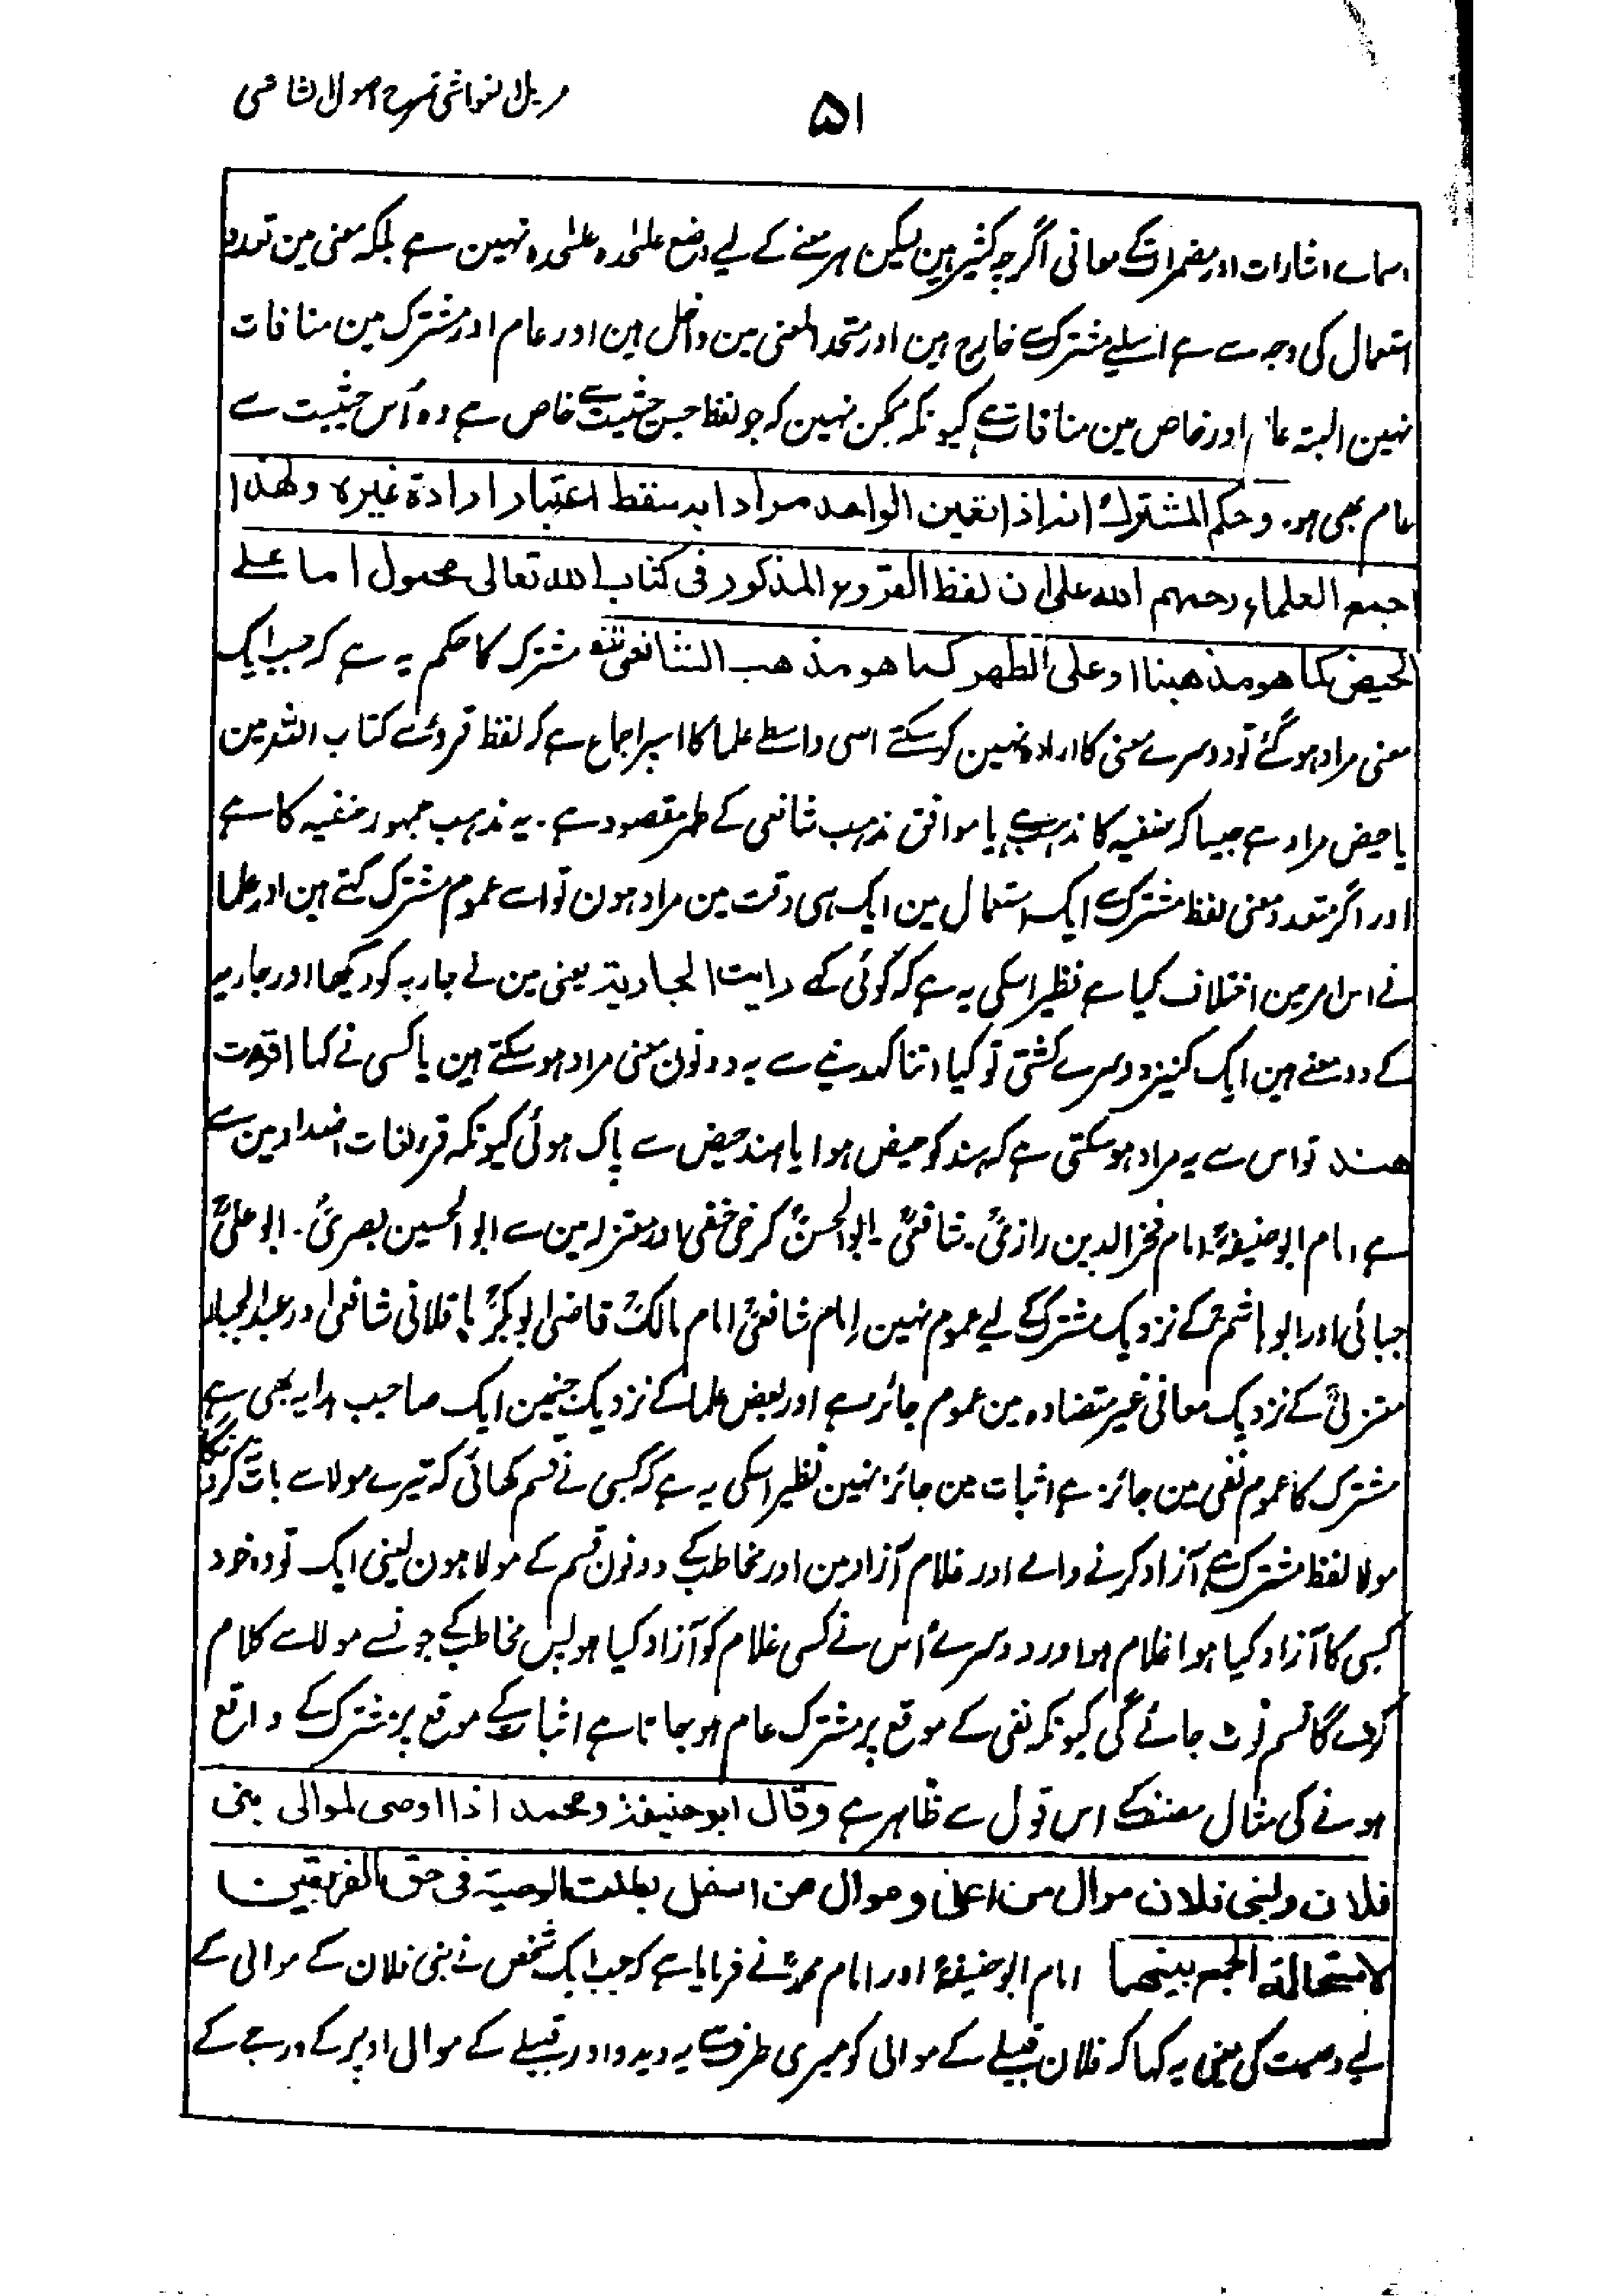 ۵۱
مزیل الغواشی شرح اصول الشاشی
اسماے اشارات اور مضمرات کے معانی اگرچہ کثیر ہین لیکن ہر معنے کے لیے وضع علٰحدہ علٰحدہ نہین ہے بلکہ معنی مین تعدد
استعمال کی وجہ سے ہے اسلیے مشترک سے خارج ہین اور متحد المعنی مین داخل ہین اور عام اور مشترک مین منافات
نہین البتہ عام اور خاص مین منافات ہے کیونکہ ممکن نہین کہ جو لفظ جس حیثیت سے خاص ہے وہ اُس حیثیت سے
عام بھی ہو۔ وحکم المشترک انہ اذا تعین الواحد مرادا بہ سقط اعتبار ارادۃ غیرہ ولھذا
اجمع العلماء رحمہم اللہ علی ان لفظ القروء المذکور فی کتاب اللہ تعالی محمول اما علے
الحیض کما ھو مذھبنا او علی الطھر کما ھو مذھب الشافعی مشترک کا حکم یہ ہے کہ جب ایک
معنی مراد ہوگئے تو دوسرے معنی کا ارادہ نہین کرسکتے اسی واسطے علما کا اسپر اجماع ہے کہ لفظ قروء سے کتاب اللہ مین
یا حیض مراد ہے جیسا کہ حنفیہ کا مذہب ہے یا موافق مذہب شافعی کے طہر مقصود ہے۔ یہ مذہب جمہور حنفیہ کا ہے
اور اگر متعدد معنی لفظ مشترک سے ایک استعمال مین ایک ہی وقت مین مراد ہون تو اسے عموم مشترک کہتے ہین اور علما
نے اس امر مین اختلاف کیا ہے نظیر اسکی یہ ہے کہ کوئی کہے رایت الجاریۃ یعنی مین نے جاریہ کو دیکھا اور جاریہ
کے دو معنے ہین ایک کنیز دوسرے کشتی تو کیا اتنا کہدینے سے یہ دونون معنی مراد ہوسکتے ہین یا کسی نے کہا اقرءت
ھند تو اس سے یہ مراد ہوسکتی ہے کہ ہند کو حیض ہوا یا ہند حیض سے پاک ہوئی کیونکہ قرء لغات اضداد مین سے
ہے امام ابو حنیفہؒ امام فخر الدین رازیؒ شافعیؒ۔ ابو الحسنؒ کرخی حنفی اور معتزلہ مین سے ابو الحسین بصریؒ۔ ابو علیؒ
جبائی اور ابو ہاشمؒ کے نزدیک مشترک کے لیے عموم نہین امام شافعیؒ امام مالکؒ قاضی ابوبکرؒ باقلانی شافعی اور عبد الجبار
معتزلیؒ کے نزدیک معانی غیر متضادہ مین عموم جائز ہے اور بعض علما کے نزدیک جنمین ایک صاحب ہدایہ بھی ہے
مشترک کا عموم نفی مین جائز ہے اثبات مین جائز نہین نظیر اسکی یہ ہے کہ کسی نے قسم کھائی کہ تیرے مولا سے بات نکرونگا
مولا لفظ مشترک ہے آزاد کرنے والے اور غلام آزاد مین اور مخاطب کے دونون قسم کے مولا ہون یعنی ایک تو وہ خود
کسی کا آزاد کیا ہوا غلام ہو اور دوسرے اُس نے کسی غلام کو آزاد کیا ہو پس مخاطب کے جونسے مولا سے کلام
کرے گا قسم ٹوٹ جائے گی کیونکہ نفی کے موقع پر مشترک عام ہو جاتا ہے اثبات کے موقع پر مشترک کے واقع
ہونے کی مثال مصنف کے اس قول سے ظاہر ہے وقال ابو حنیفۃ و محمد اذا اوصی لموالی بنی
فلان ولبنی فلان موال من اعلی و موال من اسفل بطلت الوصیۃ فی حق الفریقین
لاستحالۃ الجمع بینھما امام ابو حنیفہؒ اور امام محمدؒ نے فرمایا ہے کہ جب ایک شخص نے بنی فلان کے موالی کے
لیے وصیت کی یعنی یہ کہا کہ فلان قبیلے کے موالی کو میری طرف سے یہ دیدو اور قبیلے کے موالی اوپر کے درجے کے